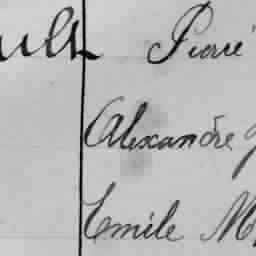 Pierre
Alexandre
Emile M